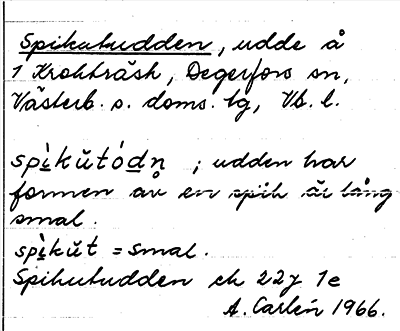 Spikutudden, udde å
1 Krokträsk, Degerfors sn,
Västerb. s. doms. tg, Vb. l.
spì̱kŭtódn ; udden har
formen av en spik är lång
smal.
spì̱kŭt = smal.
Spikutudden ek 22j 1e
A. Carlén 1966.